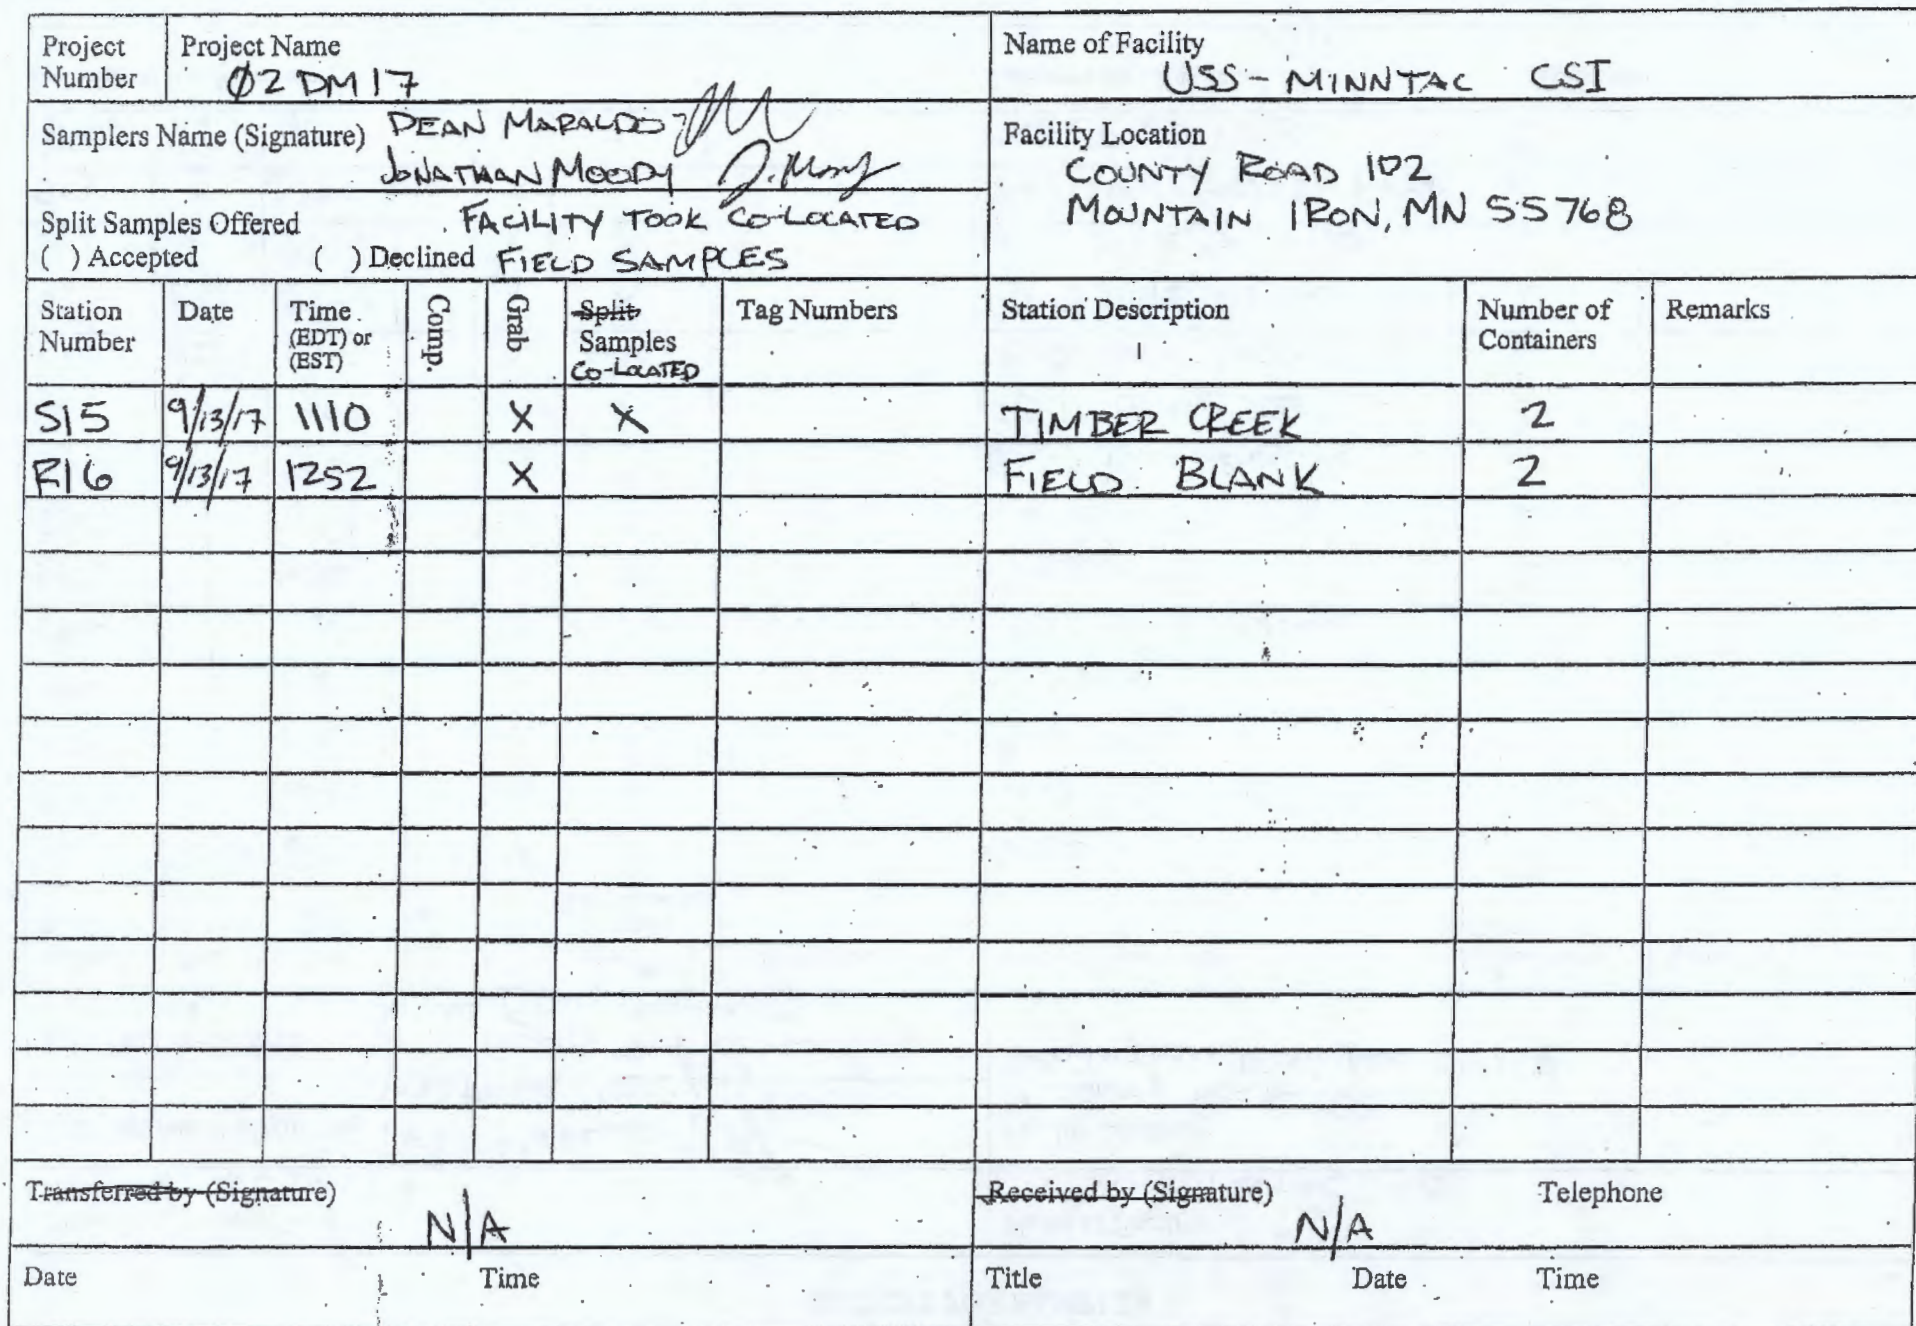 Project Number
Project Name
Ø2 DM17
Name of Facility
USS - MINNTAC CSI
Samplers Name (Signature) DEAN MARALDO
JONATHAN MOODY J. Moody
Facility Location
COUNTY ROAD 102
MOUNTAIN IRON, MN 55768
Split Samples Offered FACILITY TOOK CO-LOCATED
( ) Accepted ( ) Declined FIELD SAMPLES
Station Number
Date
Time (EDT) or (EST)
Comp.
Grab
Split Samples CO-LOCATED
Tag Numbers
Station Description
Number of Containers
Remarks
S15 9/13/17 1110 X X TIMBER CREEK 2
R16 9/13/17 1252 X FIELD BLANK 2
Transferred by (Signature)
N/A
Received by (Signature) Telephone
N/A
Date Time
Title Date Time